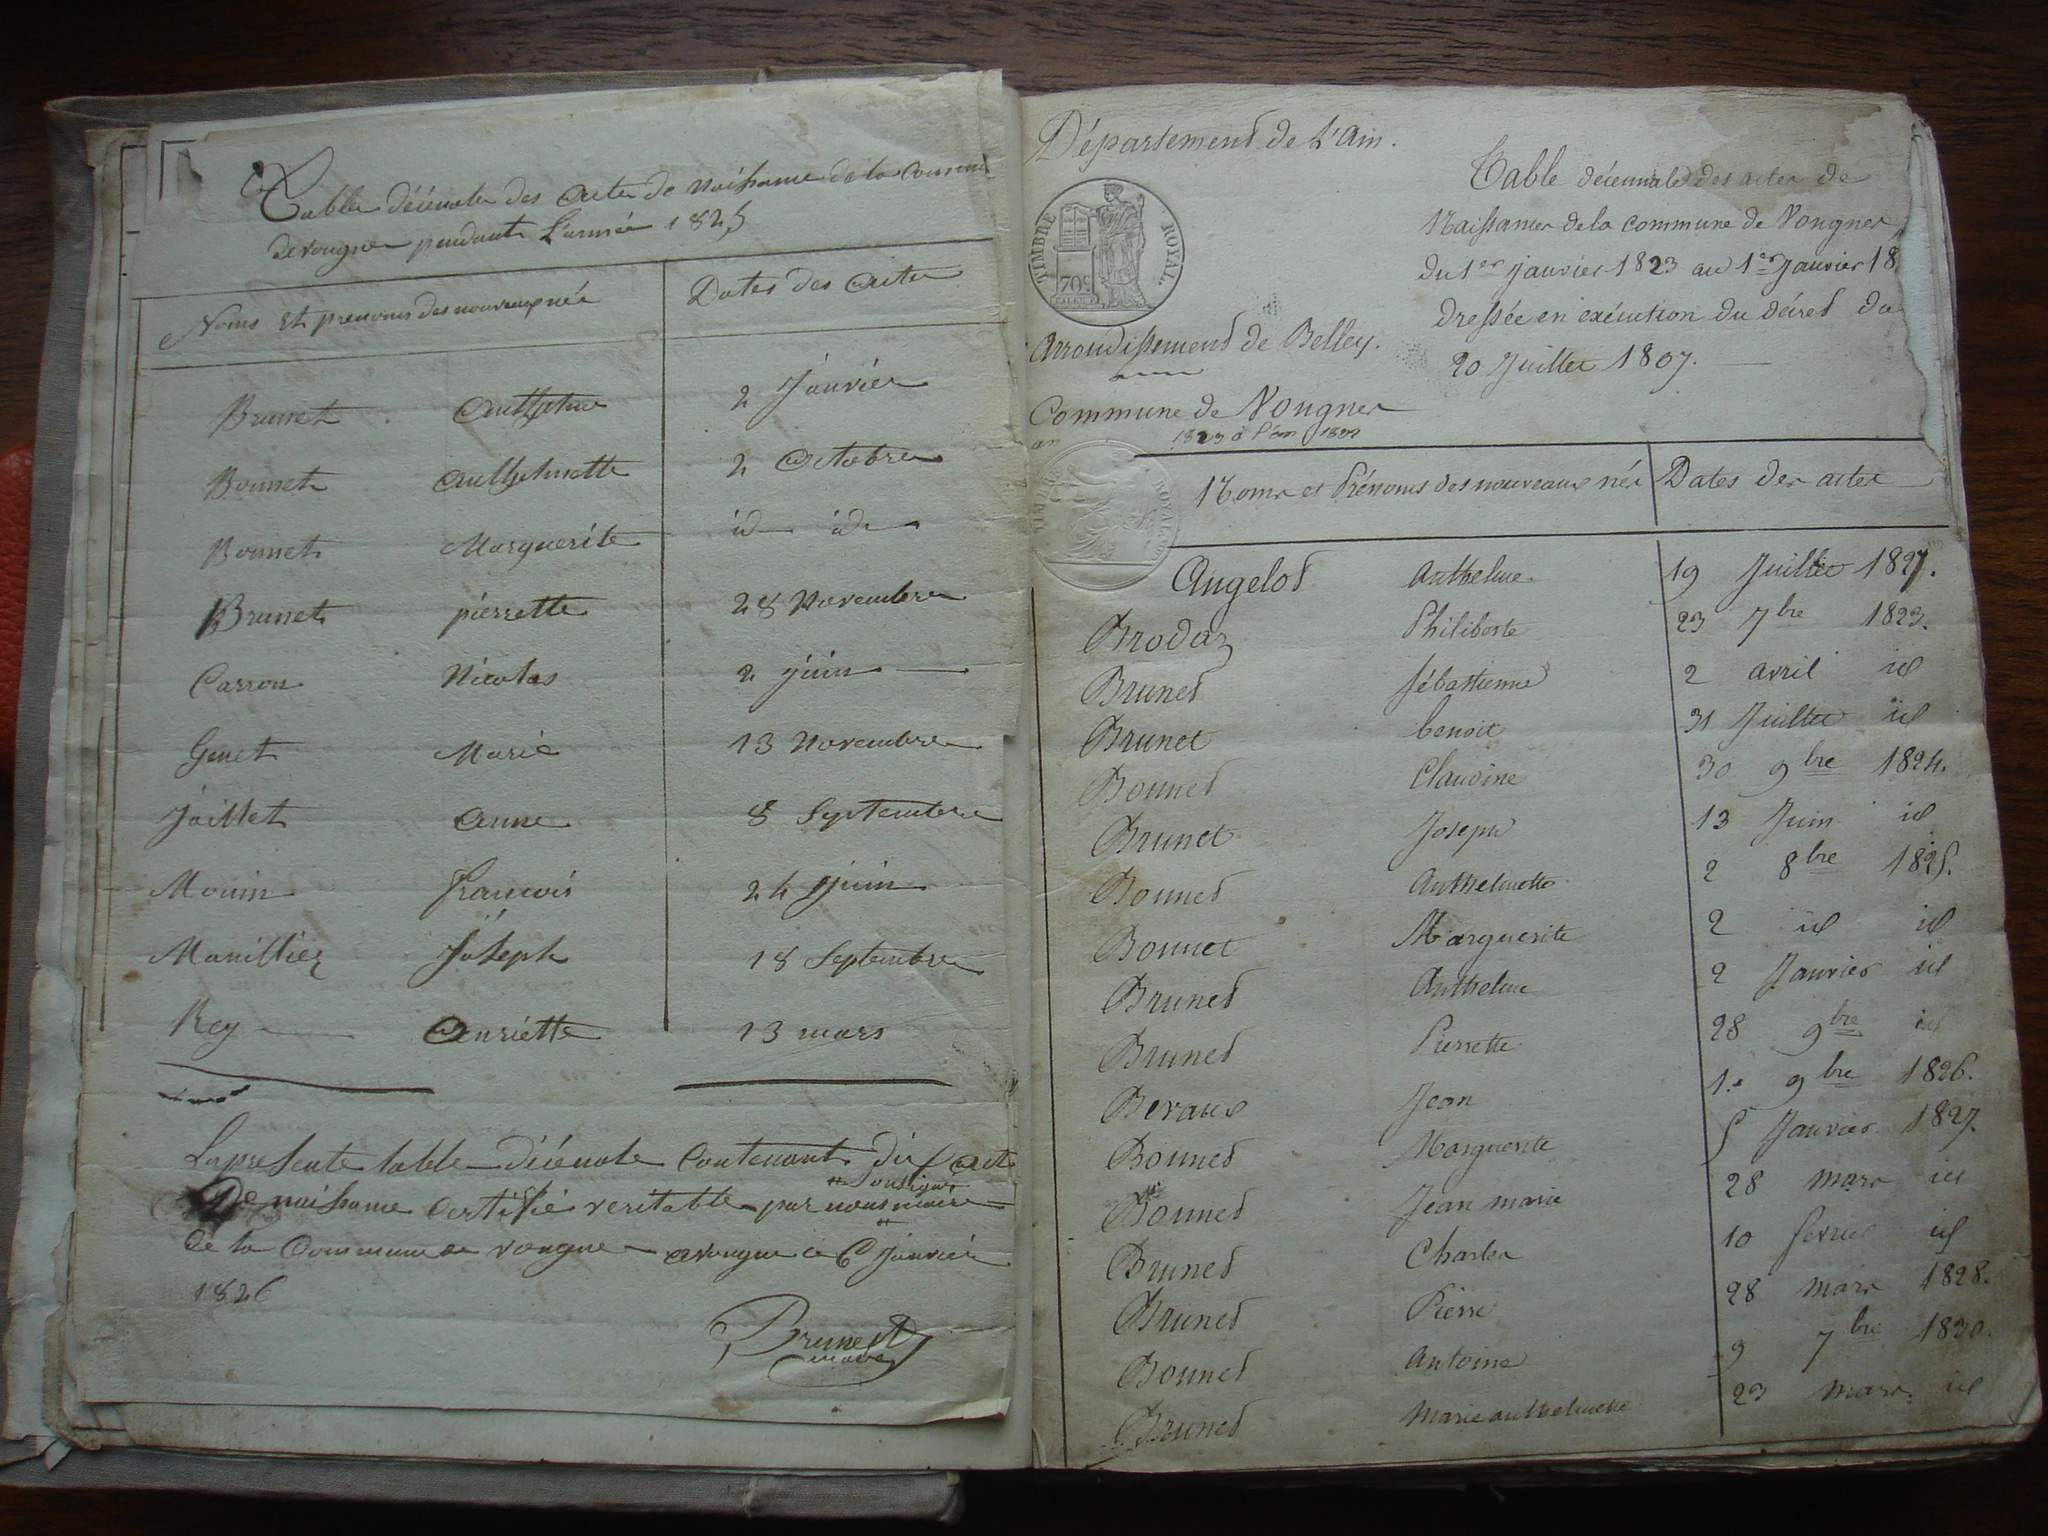 Table décenale des Acte de Naissance de la Commune
de vougne pendant L'année 1825
Noms Et prenoms des nouveaux née
Dates des Acte
Brunet Anthelme 2 Janvier
Bonnet Anthelmette 2 Octobre
Bonnet Marguerite id id
Brunet pierrette 28 Novembre
Carron Nicolas 2 juin
Genet Marie 13 Novembre
Jaillet Anne 8 Septembre
Monin francois 24 juin
Manillier Joseph 18 Septembre
Rey Henriette 13 mars
La presente table décenale Contenant dix Acte
soussigné
De naissance Certifié veritable par nous maire
de la Commune de vougne a vougne ce 6 Janvier
1826
Brunet
maire
Département de L'Ain.
TIMBRE ROYAL.
70c
Arrondissement de Belley.
Commune de Vougnes
an 1823 à l'an 1832
TIMBRE ROYAL
Table décennale des actes de
Naissances de la commune de Vougnes
du 1er Janvier 1823 au 1er Janvier 18
Dressée en exécution du décret du
20 Juillet 1807.
Noms et Prénoms des nouveaux nés Dates des actes
Angelot Anthelme 19 Juillet 1827.
Brodaz Philiberte 23 7bre 1823.
Brunet Sébastienne 2 avril id
Brunet benoit 31 Juillet id
Bonnet Claudine 30 9bre 1824.
Brunet Joseph 13 Juin id
Bonnet Anthelmette 2 8bre 1825.
Bonnet Marguerite 2 id id
Brunet Anthelme 2 Janvier id
Brunet Pierrette 28 9bre id
Bevaux Jean 1er 9bre 1826.
Bonnet Marguerite 5 Janvier 1827.
Bonnet Jean marie 28 mars id
Brunet Charles 10 fevrier id
Brunet Pierre 28 mars 1828.
Bonnet Antoine 9 7bre 1830.
Brunet Marie anthelmette 23 mars id